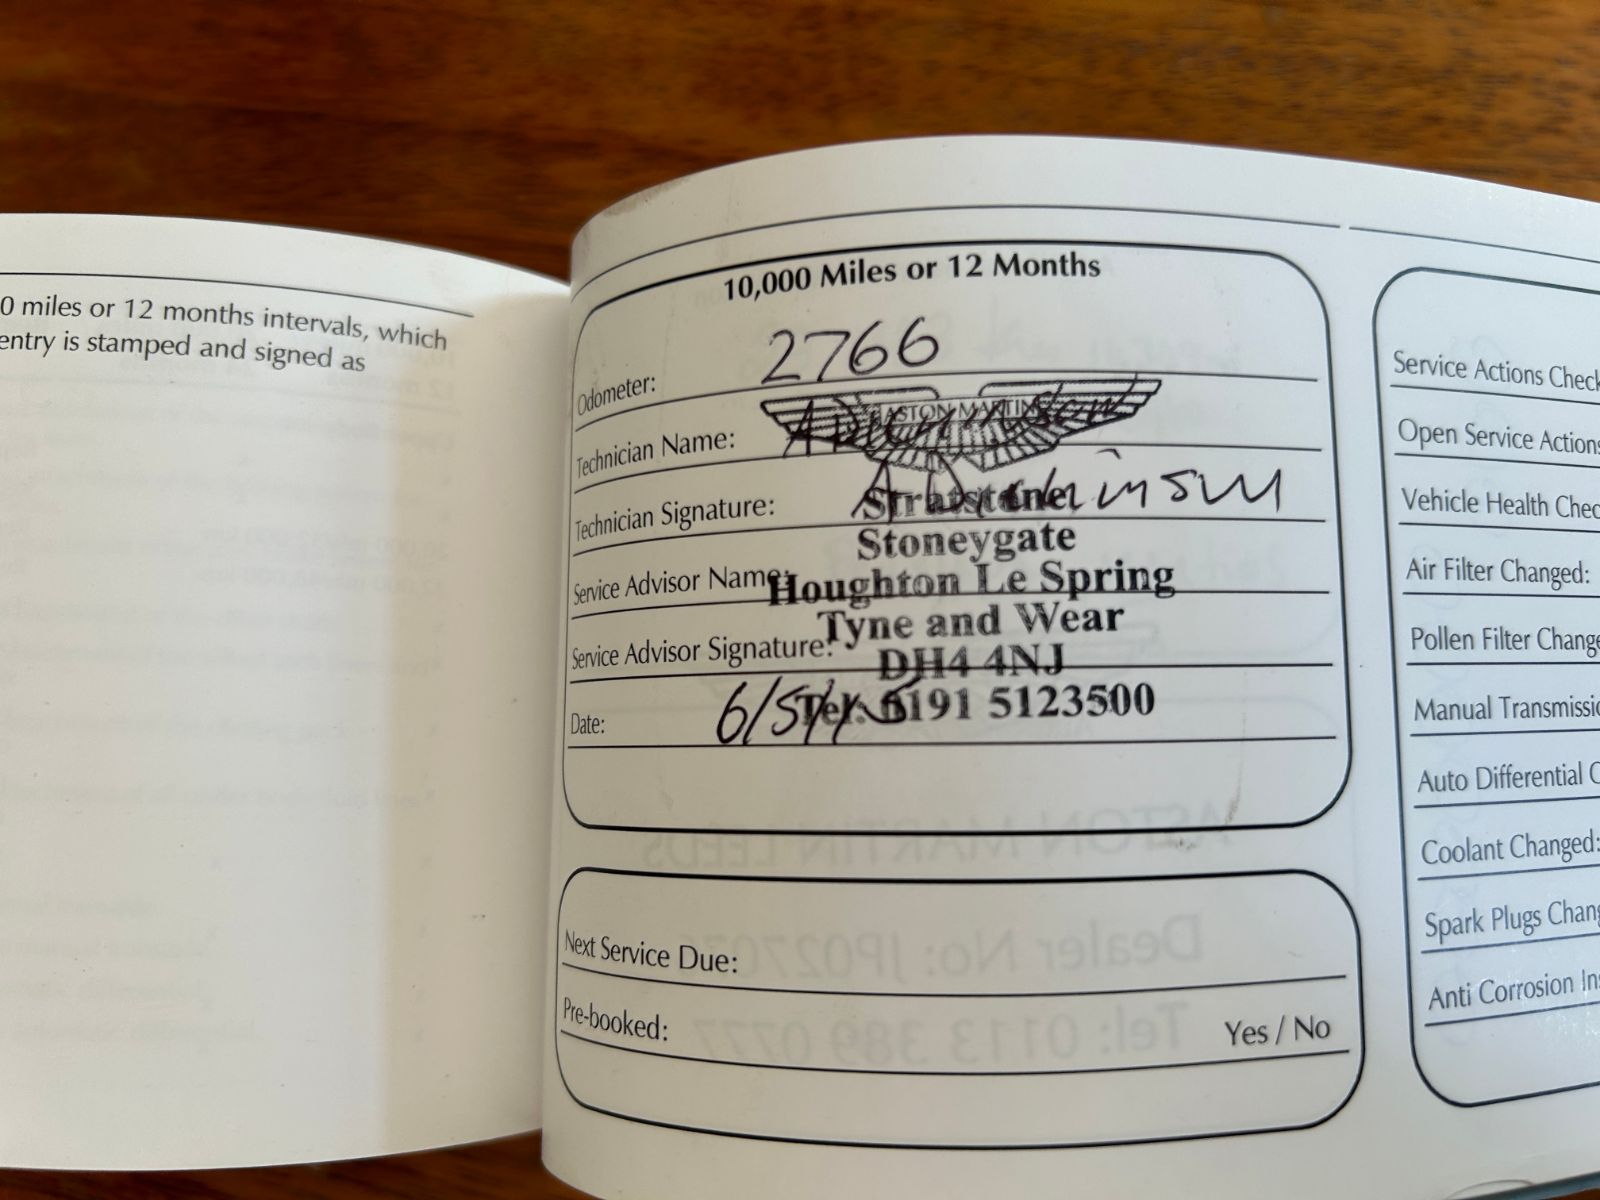 0 miles or 12 months intervals, which
entry is stamped and signed as
10,000 Miles or 12 Months
Odometer: 2766
ASTON MARTIN
Technician Name:
Technician Signature:
Stratstone
Stoneygate
Service Advisor Name:
Houghton Le Spring
Tyne and Wear
Service Advisor Signature:
DH4 4NJ
Tel: 0191 5123500
Date:
Next Service Due:
Pre-booked: Yes / No
Service Actions Check
Open Service Actions
Vehicle Health Chec
Air Filter Changed:
Pollen Filter Change
Manual Transmissi
Auto Differential C
Coolant Changed:
Spark Plugs Chang
Anti Corrosion In